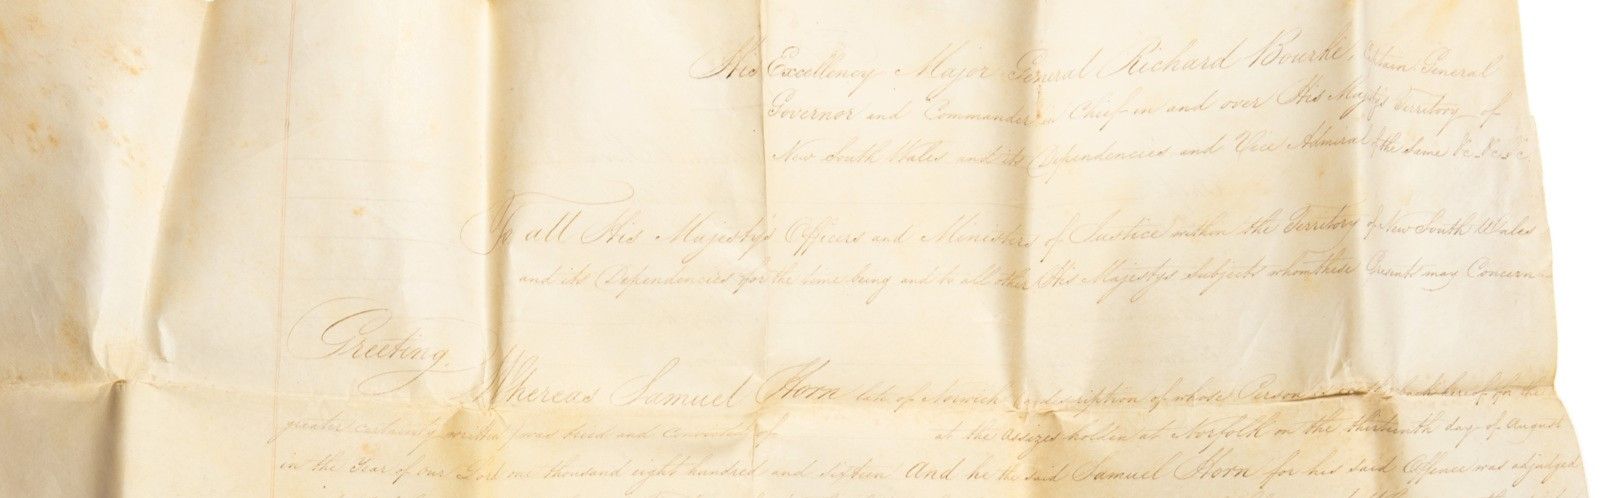 His Excellency Major General Richard Bourke, Captain General
Governor and Commander in Chief in and over His Majty's Territory of
New South Wales and its Dependencies and Vice Admiral of the Same &c &c &c
To all His Majesty's Officers and Ministers of Justice within the Territory of New South Wales
and its Dependencies for the time being and to all other His Majesty's Subjects whom these Presents may Concern
Greeting.
Whereas Samuel Horn late of Norwich (a description of whose Person is on the back hereof for the
greater certainty written) was tried and convicted of at the assizes holden at Norfolk on the thirteenth day of August
in the Year of our Lord one thousand eight hundred and sixteen And he the said Samuel Horn for his said Offence was adjudged